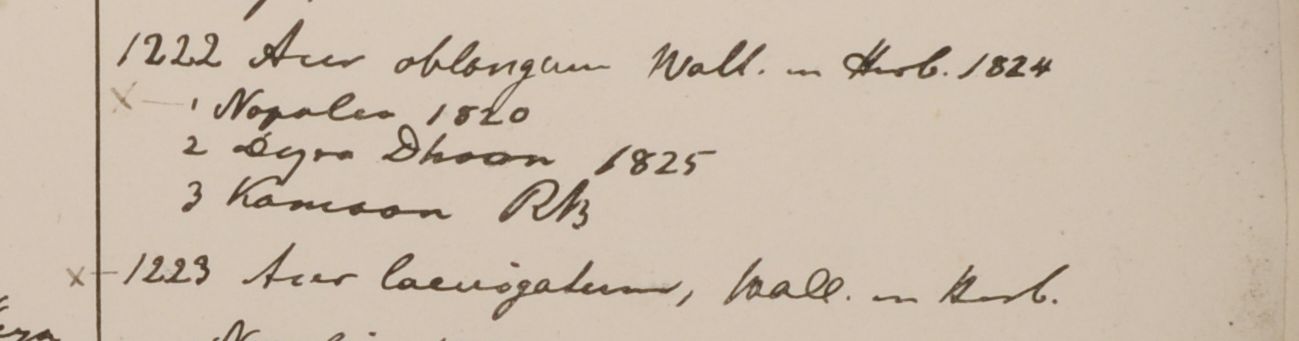 1222 Acer oblongum Wall. in Herb. 1824
1 Napalia 1820
2 Deyra Dhoon 1825
3 Kamaon RB
1223 Acer laevigatum, Wall. in Herb.